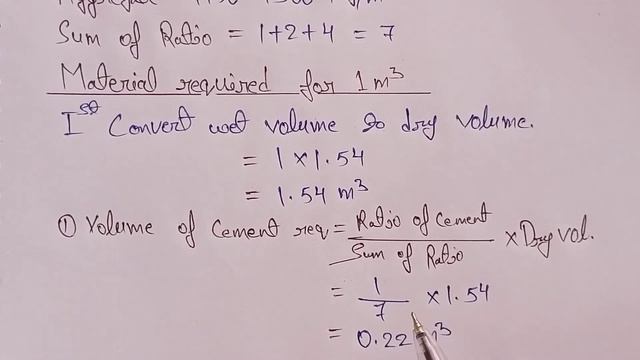 Sum of Ratio = 1+2+4 = 7
Material required for 1m³
Ist Convert wet volume to dry volume.
= 1 × 1.54
= 1.54 m³
① Volume of Cement req = Ratio of Cement / Sum of Ratio × Dry vol.
= 1/7 × 1.54
= 0.22 m³